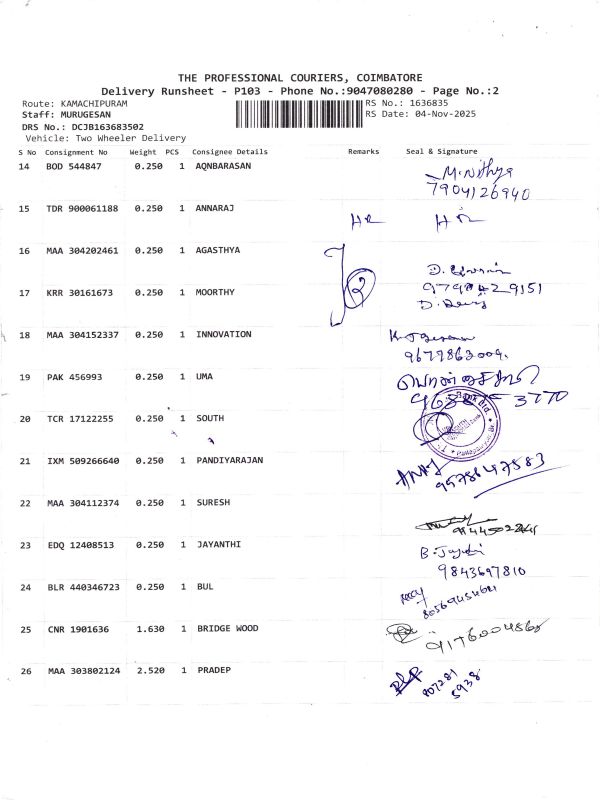 THE PROFESSIONAL COURIERS, COIMBATORE
Delivery Runsheet - P103 - Phone No.:9047080280 - Page No.:2
Route: KAMACHIPURAM RS No.: 1636835
Staff: MURUGESAN RS Date: 04-Nov-2025
DRS No.: DCJB163683502
Vehicle: Two Wheeler Delivery
S No Consignment No Weight PCS Consignee Details Remarks Seal & Signature
14 BOD 544847 0.250 1 AQNBARASAN M.Nithya
7904126940
15 TDR 900061188 0.250 1 ANNARAJ
16 MAA 304202461 0.250 1 AGASTHYA
17 KRR 30161673 0.250 1 MOORTHY
18 MAA 304152337 0.250 1 INNOVATION
9677863009.
19 PAK 456993 0.250 1 UMA
20 TCR 17122255 0.250 1 SOUTH
21 IXM 509266640 0.250 1 PANDIYARAJAN
9578647583
22 MAA 304112374 0.250 1 SURESH
23 EDQ 12408513 0.250 1 JAYANTHI
9843697810
24 BLR 440346723 0.250 1 BUL
25 CNR 1901636 1.630 1 BRIDGE WOOD
9176004868
26 MAA 303802124 2.520 1 PRADEP
807281
5938